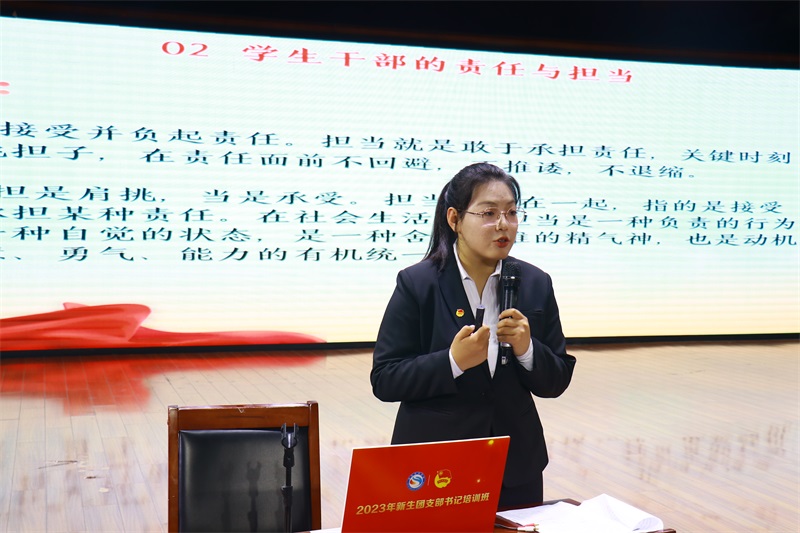 02 学生干部的责任与担当
接受并负起责任。担当就是敢于承担责任，关键时刻
担子，在责任面前不回避，推诿，不退缩。
担是肩挑，当是承受。担当 在一起，指的是接受
担某种责任。在社会生活 当是一种负责的行为
种自觉的状态，是一种舍 的精气神，也是动机
、勇气、能力的有机统一
2023年新生团支部书记培训班